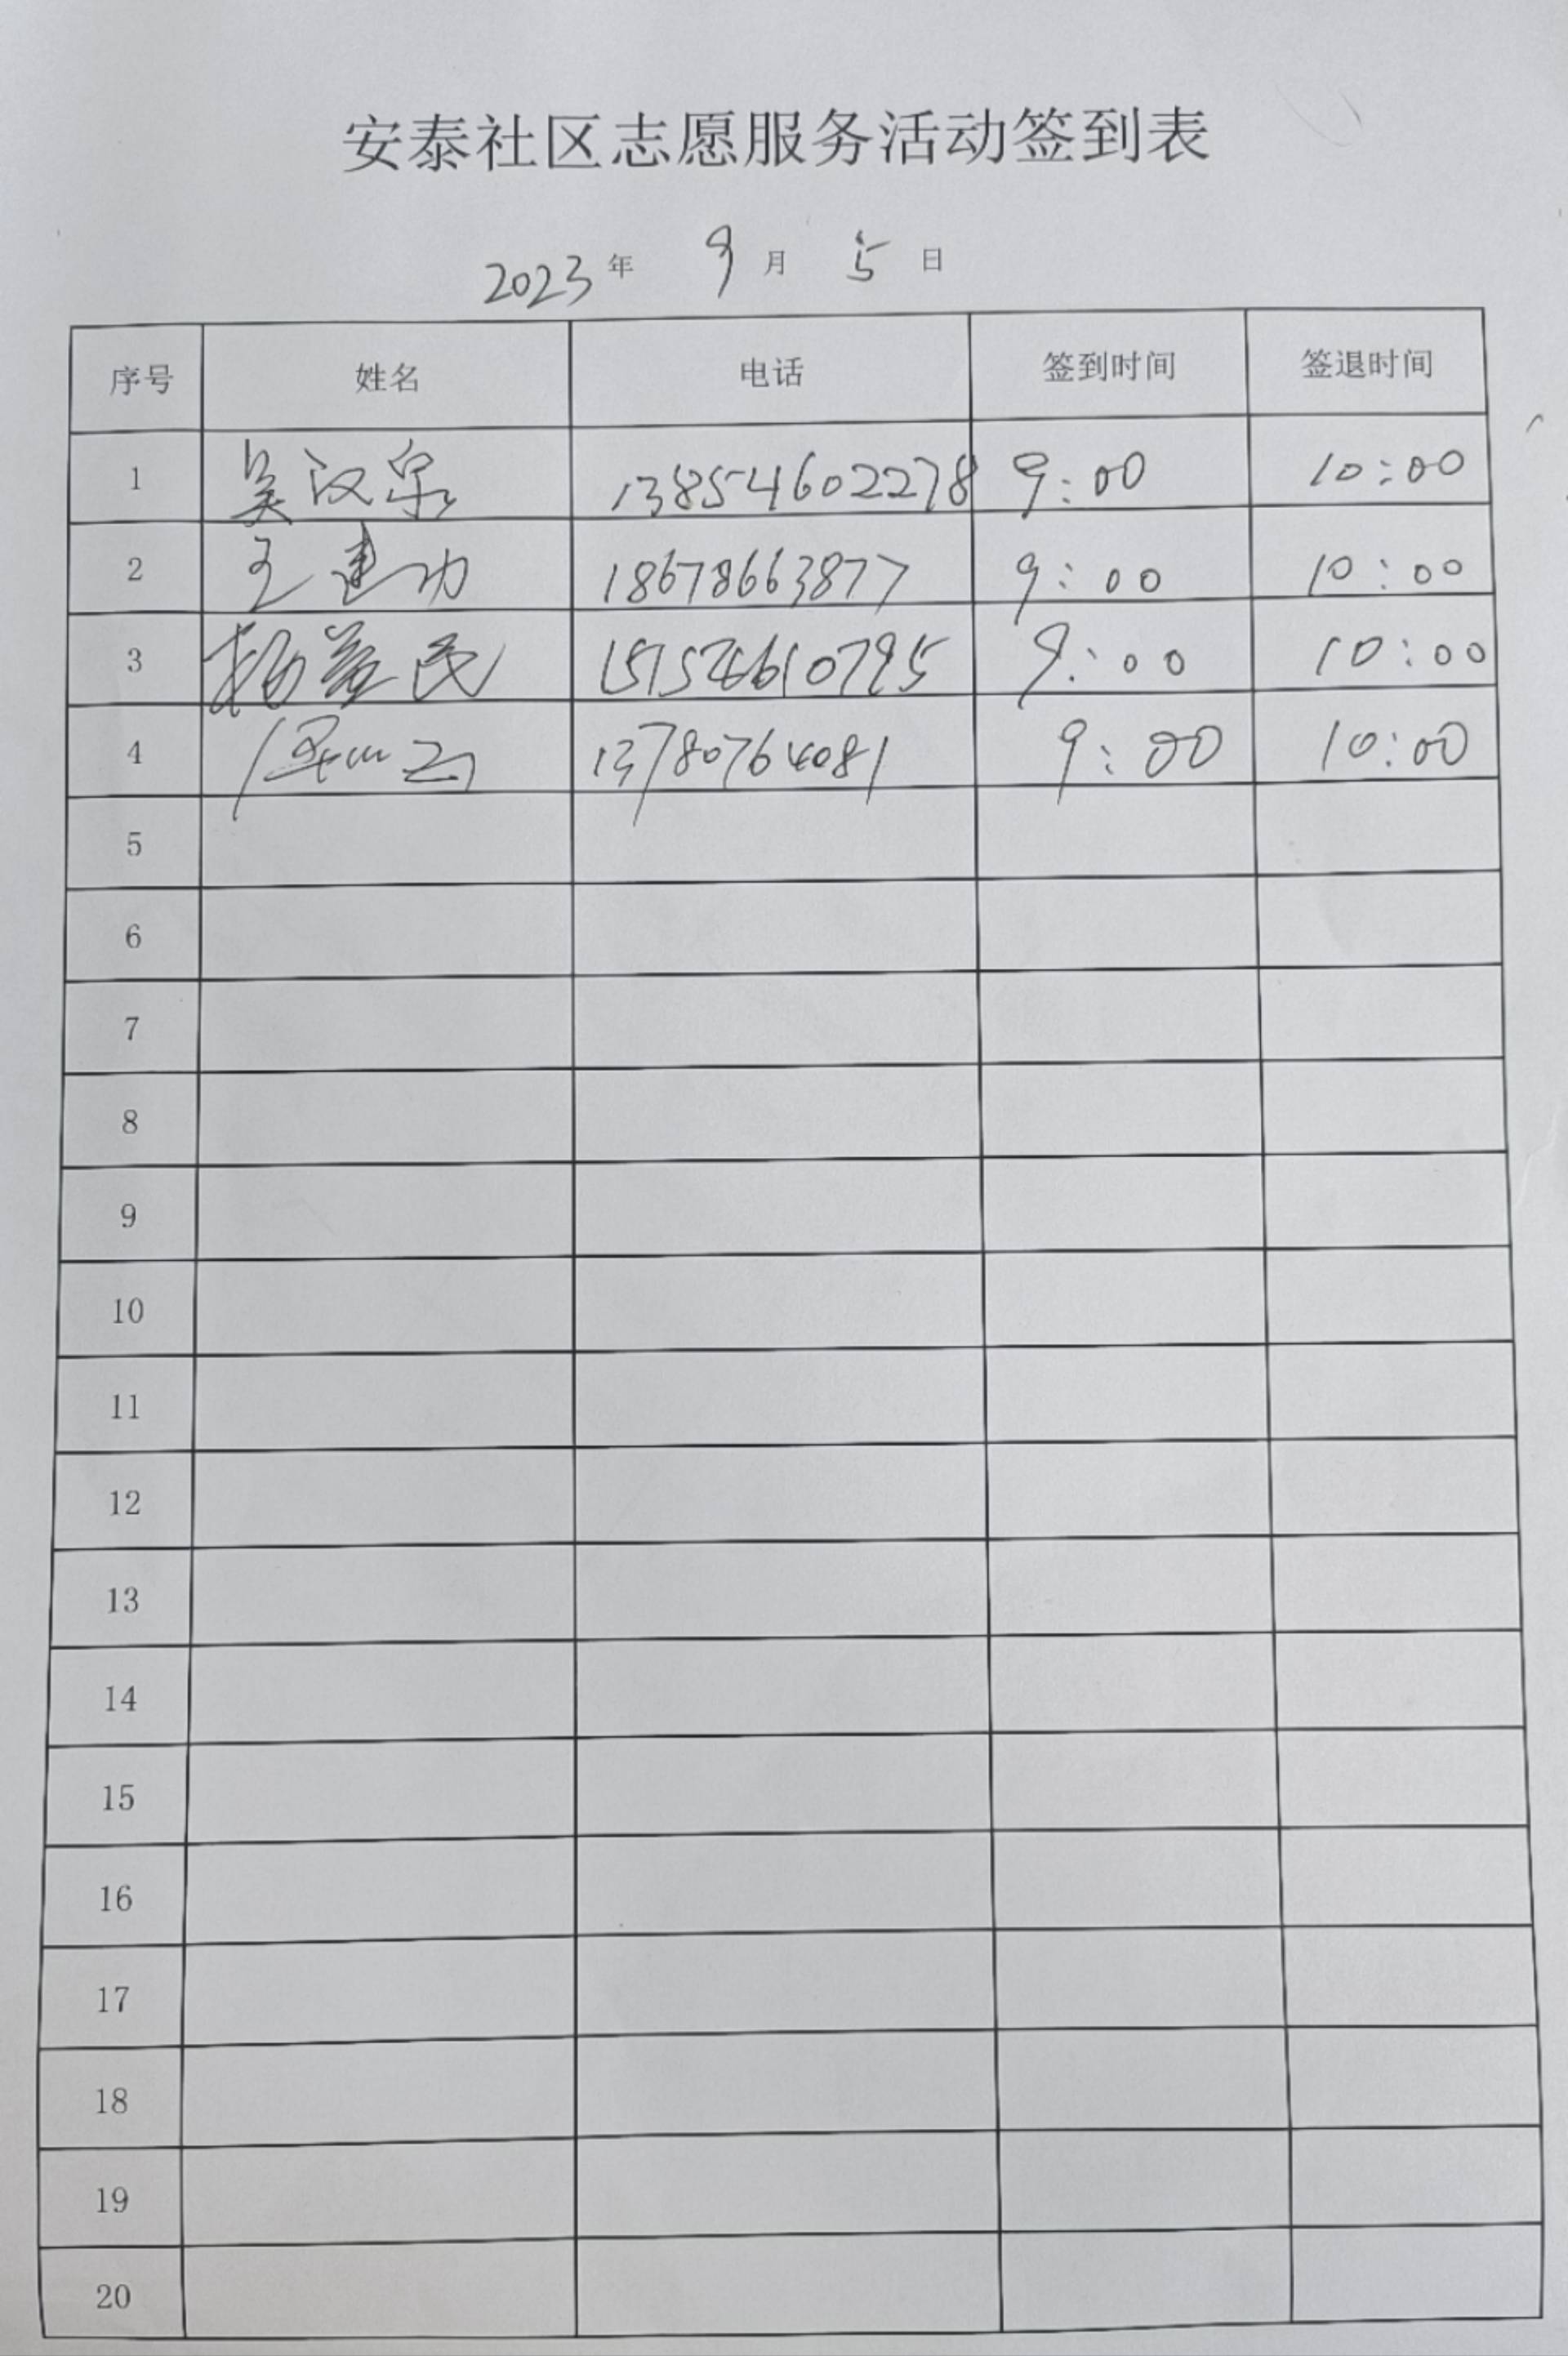 安泰社区志愿服务活动签到表
2023年 9月 5日
序号 姓名 电话 签到时间 签退时间
1 吴汉泉 13854602278 9:00 10:00
2 王建功 18678663877 9:00 10:00
3 杨益民 9:00 10:00
4 13780764081 9:00 10:00
5
6
7
8
9
10
11
12
13
14
15
16
17
18
19
20